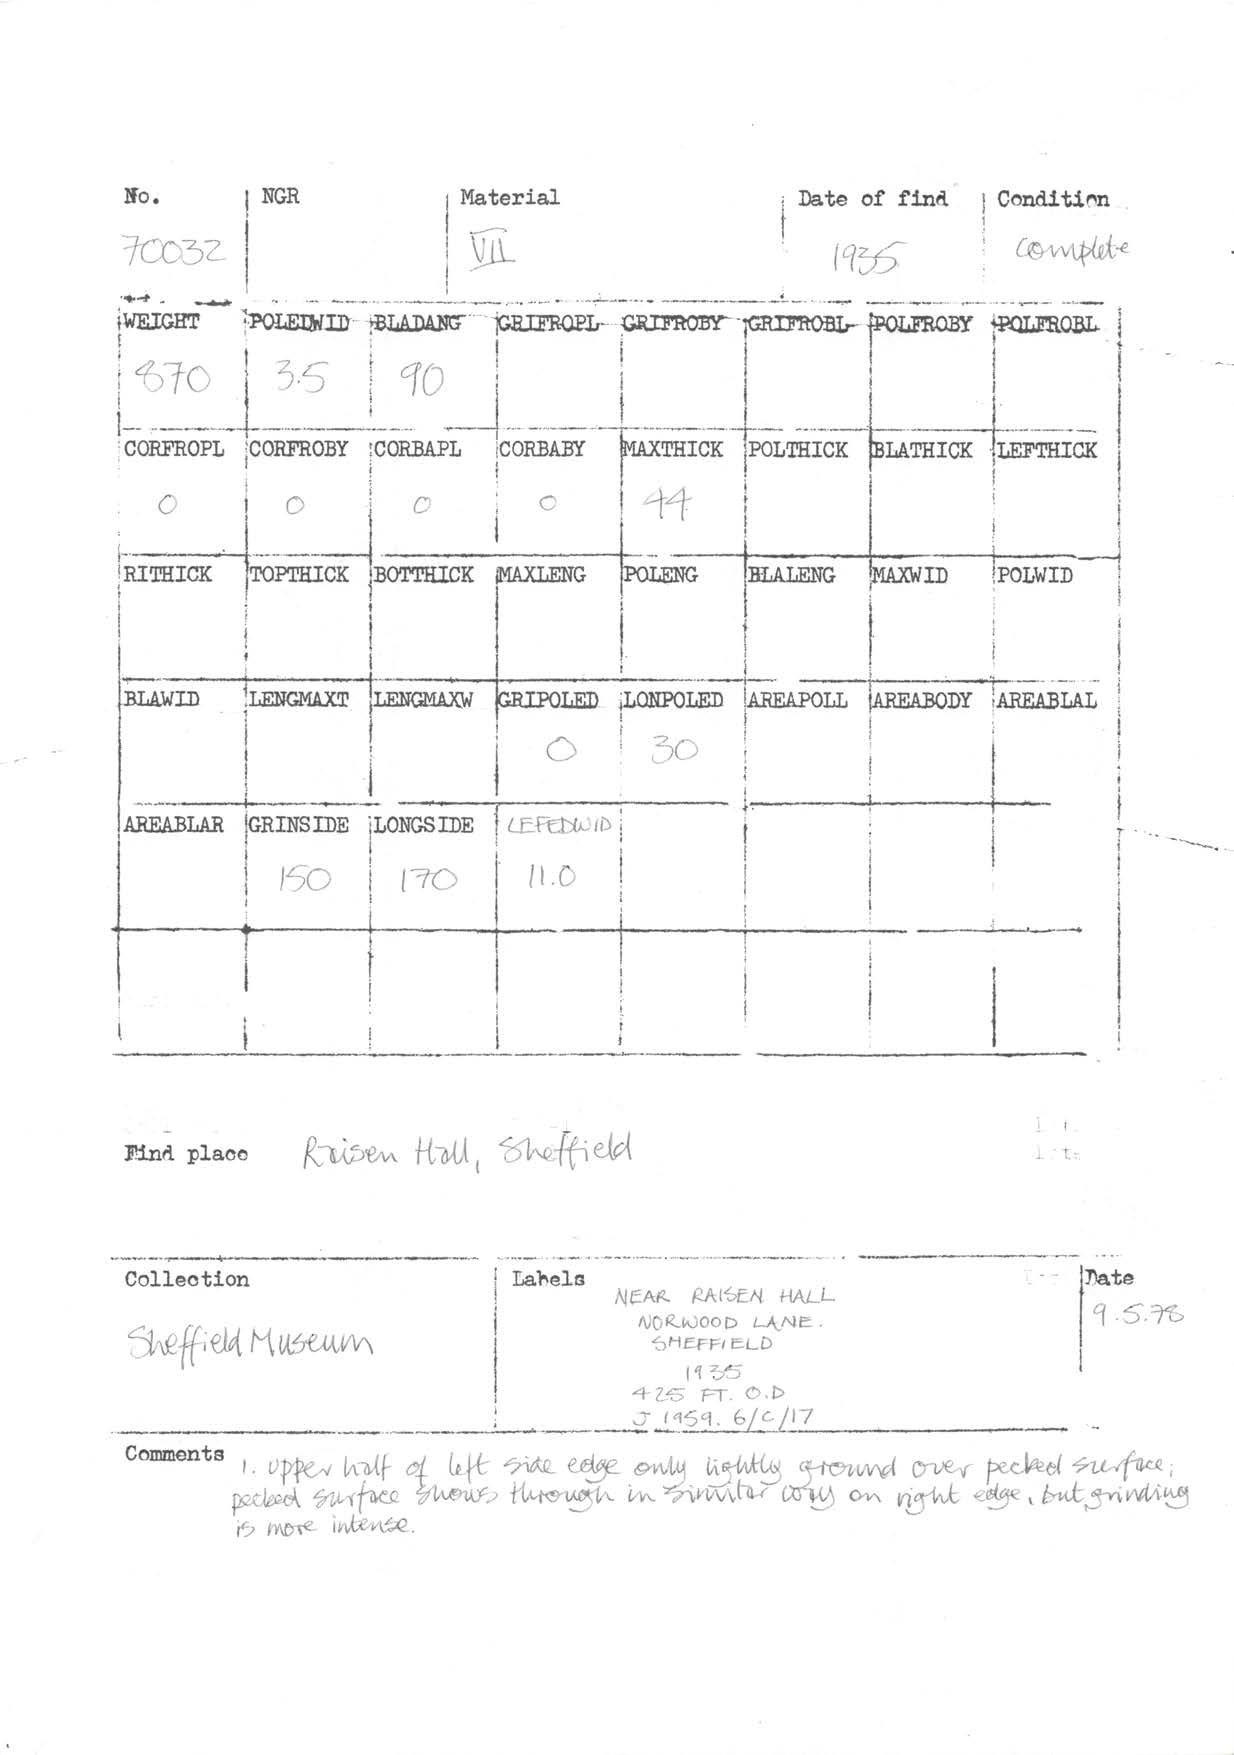 No. NGR Material Date of find Condition
70032 VII 1935 complete
WEIGHT POLEDWID BLADANG GRIFROPL GRIFROBY GRIFROBL POLFROBY POLFROBL
870 3.5 90
CORFROPL CORFROBY CORBAPL CORBABY MAXTHICK POLTHICK BLATHICK LEFTHICK
0 0 0 0 44
RITHICK TOPTHICK BOTTHICK MAXLENG POLENG BLALENG MAXWID POLWID
BLAWID LENGMAXT LENGMAXW GRIPOLED LONPOLED AREAPOLL AREABODY AREABLAL
0 30
AREABLAR GRINSIDE LONGSIDE LEFEDWID
150 170 11.0
Find place Raisen Hall, Sheffield
Collection Labels Date
NEAR RAISEN HALL
9.5.78
NORWOOD LANE.
Sheffield Museum
SHEFFIELD
1935
425 FT. O.D
J 1959. 6/C/17
Comments 1. Upper half of left side edge only lightly ground over pecked surface;
pecked surface shows through in similar way on right edge, but grinding
is more intense.